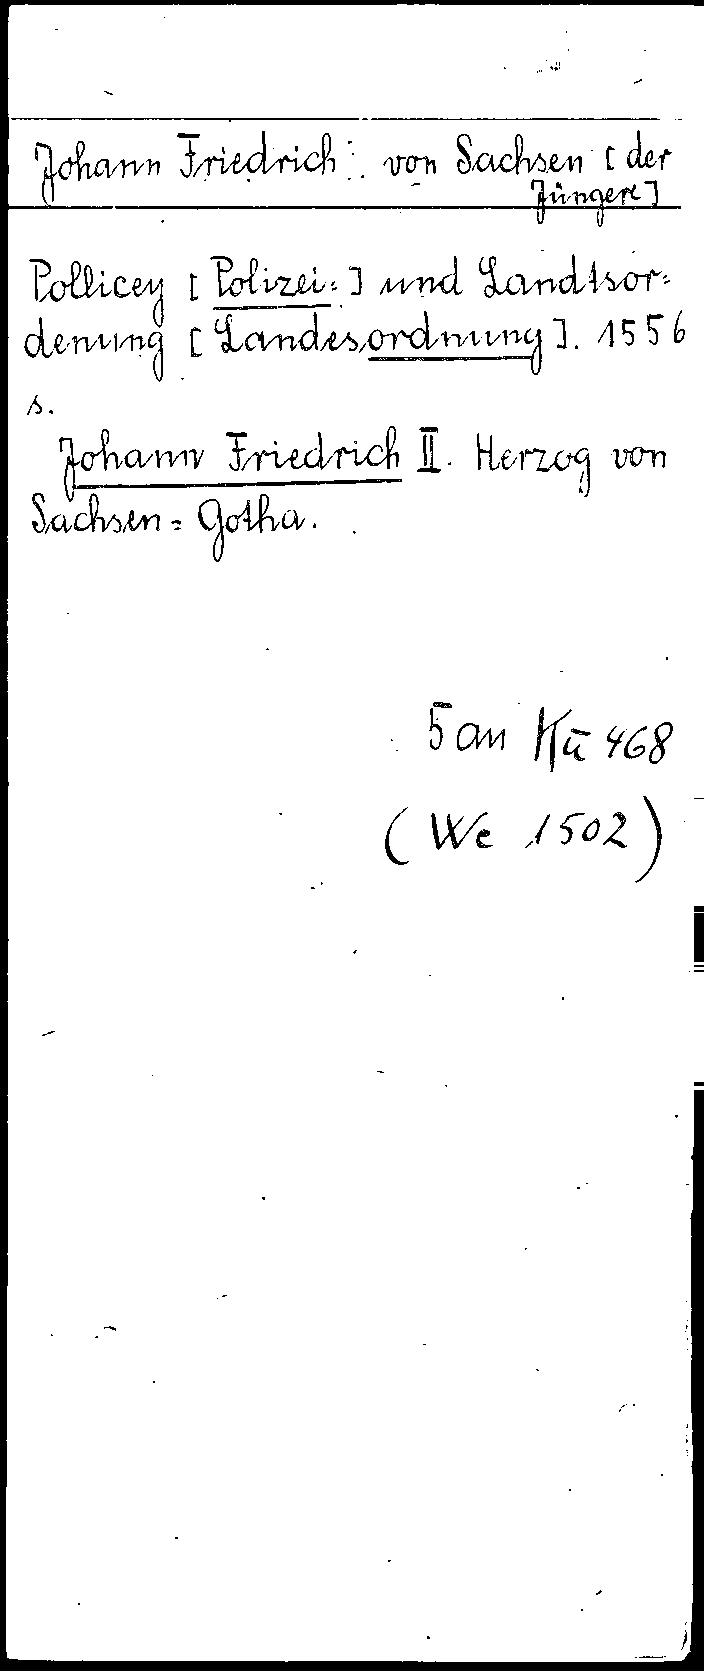 Johann Friedrich : von Sachsen [der
Jüngere]
Pollicey [Polizei=] und Landtsor=
denung [Landesordnung]. 1556
s.
Johann Friedrich II. Herzog von
Sachsen=Gotha.
5 an Kü 468
(We 1502)